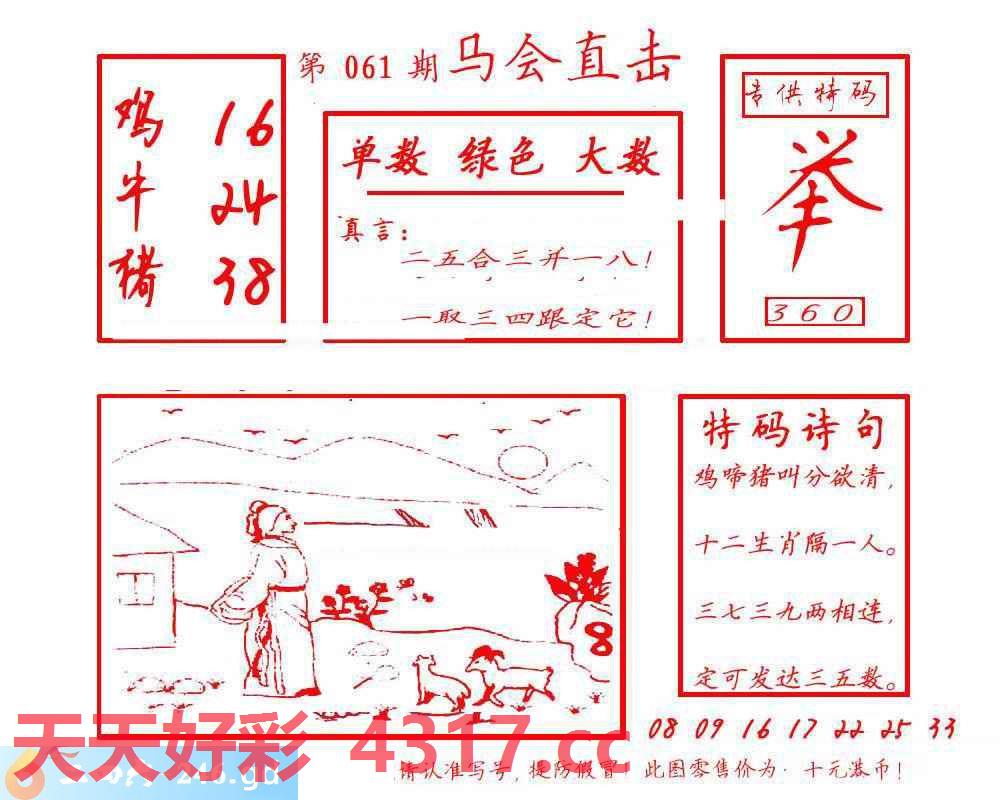 第 061 期 马会直击
鸡 16
牛 24
猪 38
单数 绿色 大数
真言：
二五合三并一八！
一取三四跟定它！
专供特码
举
360
8
特码诗句
鸡啼猪叫分欲清，
十二生肖隔一人。
三七三九两相连，
定可发达三五数。
08 09 16 17 22 25 33
天天好彩 4317.cc
246.gd
请认准写号，提防假冒！此图零售价为·十元港币！